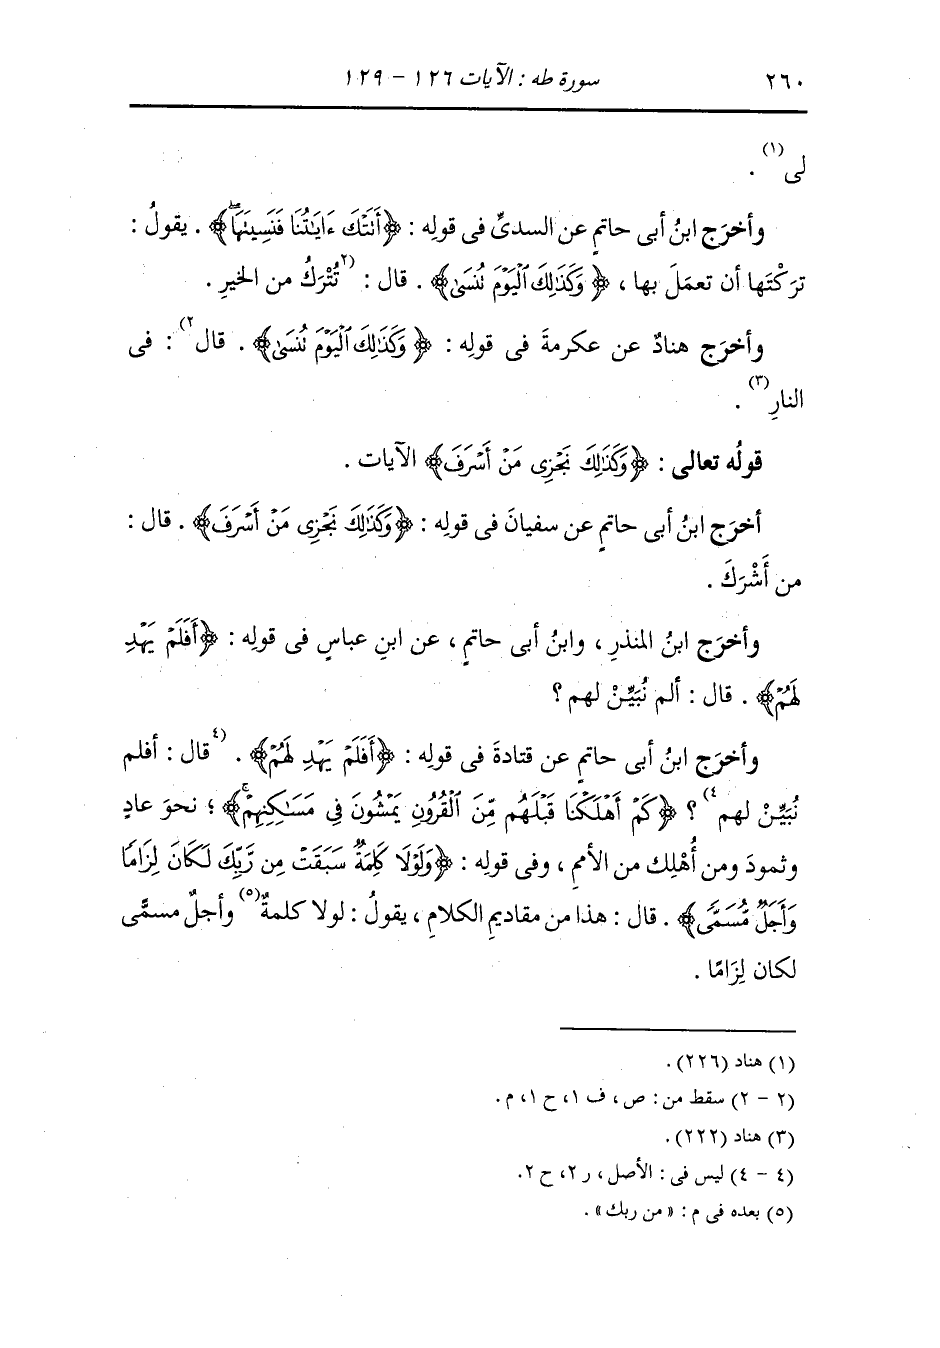 ٢٦٠ سورة طه : الآيات ١٢٦ - ١٢٩
لى(١) .
وأخرَج ابنُ أبى حاتمٍ عن السدىِّ فى قولِه : ﴿أَتَتْكَ ءَايَٰتُنَا فَنَسِينَهَا﴾ . يقولُ :
ترَكْتَها أن تعمَلَ بها ، ﴿وَكَذَٰلِكَ ٱلْيَوْمَ نُنسَىٰ﴾ . قال : (٢تُتْرَكُ من الخيرِ .
وأخرَج هنادٌ عن عكرمةَ فى قولِه : ﴿وَكَذَٰلِكَ ٱلْيَوْمَ نُنسَىٰ﴾ . قال٢) : فى
النارِ(٣) .
قولُه تعالى : ﴿وَكَذَٰلِكَ نَجْزِى مَنْ أَسْرَفَ﴾ الآيات .
أخرَج ابنُ أبى حاتمٍ عن سفيانَ فى قولِه : ﴿وَكَذَٰلِكَ نَجْزِى مَنْ أَسْرَفَ﴾ . قال :
من أَشْرَكَ .
وأخرَج ابنُ المنذرِ ، وابنُ أبى حاتمٍ ، عن ابنِ عباسٍ فى قولِه : ﴿أَفَلَمْ يَهْدِ
لَهُمْ﴾ . قال : ألم نُبَيِّنْ لهم ؟
وأخرَج ابنُ أبى حاتمٍ عن قتادةَ فى قولِه : ﴿أَفَلَمْ يَهْدِ لَهُمْ﴾ . (٤قال : أفلم
نُبَيِّنْ لهم٤) ؟ ﴿كَمْ أَهْلَكْنَا قَبْلَهُم مِّنَ ٱلْقُرُونِ يَمْشُونَ فِى مَسَٰكِنِهِمْ﴾ ؛ نحوَ عادٍ
وثمودَ ومن أُهْلِك من الأممِ ، وفى قولِه : ﴿وَلَوْلَا كَلِمَةٌ سَبَقَتْ مِن رَّبِّكَ لَكَانَ لِزَامًا
وَأَجَلٌ مُّسَمًّى﴾ . قال : هذا من مقاديمِ الكلامِ ، يقولُ : لولا كلمةٌ(٥) وأجلٌ مسمًّى
لكان لِزَامًا .
(١) هناد (٢٢٦) .
(٢ - ٢) سقط من : ص ، ف ١، ح ١، م .
(٣) هناد (٢٢٢) .
(٤ - ٤) ليس فى : الأصل ، ر ٢، ح ٢.
(٥) بعده فى م : « من ربك » .